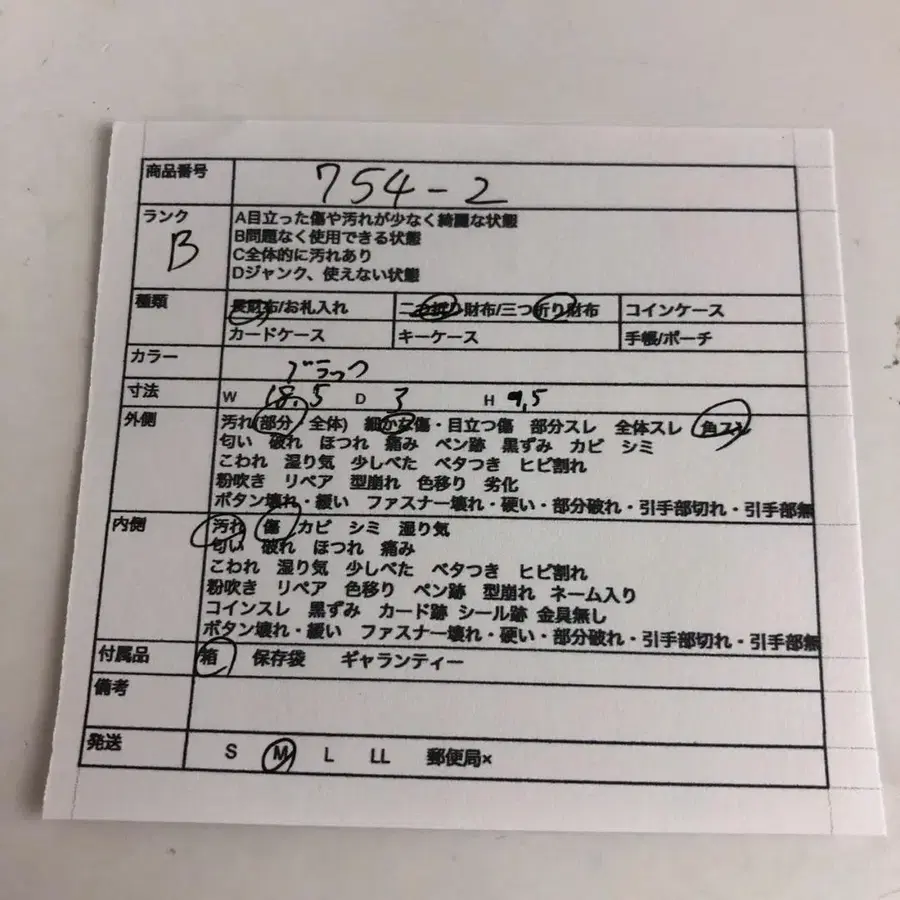 商品番号 754-2
ランク B
A目立った傷や汚れが少なく綺麗な状態
B問題なく使用できる状態
C全体的に汚れあり
Dジャンク、使えない状態
種類 長財布/お札入れ 二つ折り財布/三つ折り財布 コインケース
カードケース キーケース 手帳/ポーチ
カラー ブラック
寸法 W 18.5 D 3 H 9,5
外側 汚れ(部分・全体) 細かな傷・目立つ傷 部分スレ 全体スレ 角スレ
匂い 破れ ほつれ 痛み ペン跡 黒ずみ カビ シミ
こわれ 湿り気 少しべた ベタつき ヒビ割れ
粉吹き リペア 型崩れ 色移り 劣化
ボタン壊れ・緩い ファスナー壊れ・硬い・部分破れ・引手部切れ・引手部無
内側 汚れ 傷 カビ シミ 湿り気
匂い 破れ ほつれ 痛み
こわれ 湿り気 少しべた ベタつき ヒビ割れ
粉吹き リペア 色移り ペン跡 型崩れ ネーム入り
コインスレ 黒ずみ カード跡 シール跡 金具無し
ボタン壊れ・緩い ファスナー壊れ・硬い・部分破れ・引手部切れ・引手部無
付属品 箱 保存袋 ギャランティー
備考
発送 S M L LL 郵便局×